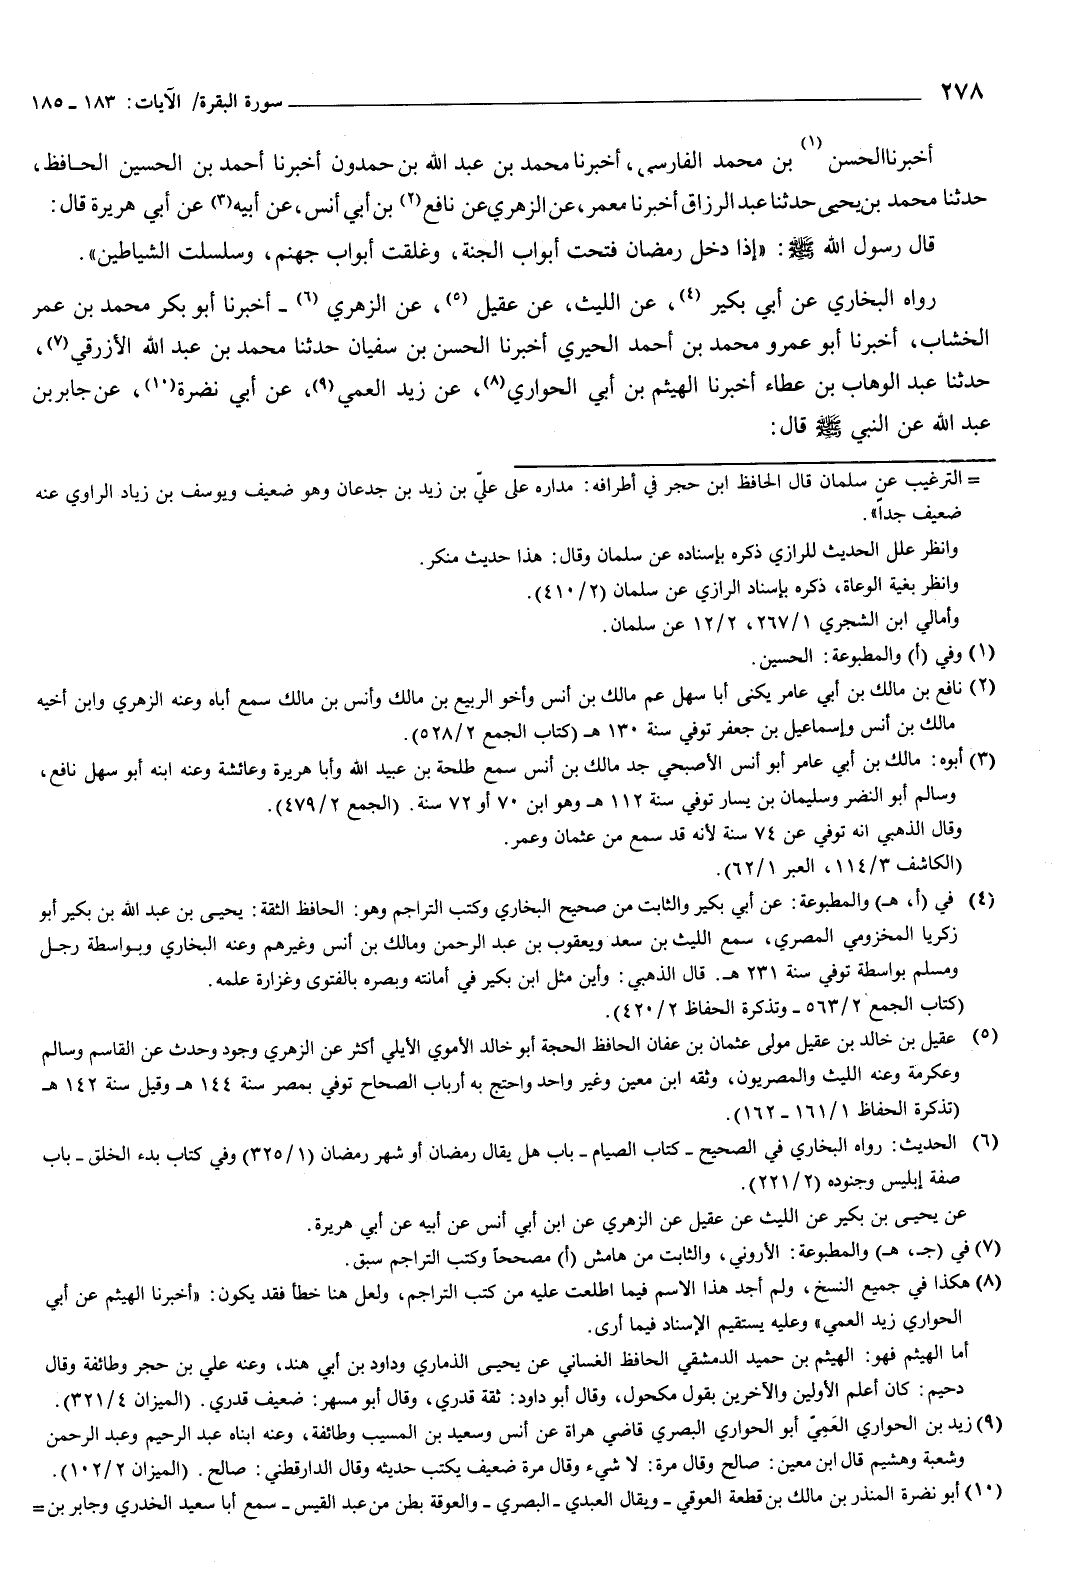 ٢٧٨ سورة البقرة/ الآيات: ١٨٣ ـ ١٨٥
أخبرنا الحسن (١) بن محمد الفارسي، أخبرنا محمد بن عبد الله بن حمدون أخبرنا أحمد بن الحسين الحـافظ،
حدثنا محمد بن يحيى حدثنا عبد الرزاق أخبرنا معمر، عن الزهري عن نافع (٢) بن أبي أنس، عن أبيه (٣) عن أبي هريرة قال:
قال رسول الله ﷺ: «إذا دخل رمضان فتحت أبواب الجنة، وغلقت أبواب جهنم، وسلسلت الشياطين».
رواه البخاري عن أبي بكير (٤)، عن الليث، عن عقيل (٥)، عن الزهري (٦) ـ أخبرنا أبو بكر محمد بن عمر
الخشاب، أخبرنا أبو عمرو محمد بن أحمد الحيري أخبرنا الحسن بن سفيان حدثنا محمد بن عبد الله الأزرقي (٧)،
حدثنا عبد الوهاب بن عطاء أخبرنا الهيثم بن أبي الحواري (٨)، عن زيد العمي (٩)، عن أبي نضرة (١٠)، عن جابر بن
عبد الله عن النبي ﷺ قال:
= الترغيب عن سلمان قال الحافظ ابن حجر في أطرافه: مداره على عليّ بن زيد بن جدعان وهو ضعيف ويوسف بن زياد الراوي عنه
ضعيف جداً».
وانظر علل الحديث للرازي ذكره بإسناده عن سلمان وقال: هذا حديث منكر.
وانظر بغية الوعاة، ذكره بإسناد الرازي عن سلمان (٤١٠/٢).
وأمالي ابن الشجري ٢٦٧/١، ١٢/٢ عن سلمان.
(١) وفي (أ) والمطبوعة: الحسين.
(٢) نافع بن مالك بن أبي عامر يكنى أبا سهل عم مالك بن أنس وأخو الربيع بن مالك وأنس بن مالك سمع أباه وعنه الزهري وابن أخيه
مالك بن أنس وإسماعيل بن جعفر توفي سنة ١٣٠ هـ (كتاب الجمع ٥٢٨/٢).
(٣) أبوه: مالك بن أبي عامر أبو أنس الأصبحي جد مالك بن أنس سمع طلحة بن عبيد الله وأبا هريرة وعائشة وعنه ابنه أبو سهل نافع،
وسالم أبو النضر وسليمان بن يسار توفي سنة ١١٢ هـ وهو ابن ٧٠ أو ٧٢ سنة. (الجمع ٤٧٩/٢).
وقال الذهبي انه توفي عن ٧٤ سنة لأنه قد سمع من عثمان وعمر.
(الكاشف ١١٤/٣، العبر ٦٢/١).
(٤) في (أ، هـ) والمطبوعة: عن أبي بكير والثابت من صحيح البخاري وكتب التراجم وهو: الحافظ الثقة: يحيى بن عبد الله بن بكير أبو
زكريا المخزومي المصري، سمع الليث بن سعد ويعقوب بن عبد الرحمن ومالك بن أنس وغيرهم وعنه البخاري وبـواسطة رجـل
ومسلم بواسطة توفي سنة ٢٣١ هـ. قال الذهبي: وأين مثل ابن بكير في أمانته وبصره بالفتوى وغزارة علمه.
(كتاب الجمع ٥٦٣/٢ ـ وتذكرة الحفاظ ٤٢٠/٢).
(٥) عقيل بن خالد بن عقيل مولى عثمان بن عفان الحافظ الحجة أبو خالد الأموي الأيلي أكثر عن الزهري وجود وحدث عن القاسم وسالم
وعكرمة وعنه الليث والمصريون، وثقه ابن معين وغير واحد واحتج به أرباب الصحاح توفي بمصر سنة ١٤٤ هـ وقيل سنة ١٤٢ هـ
(تذكرة الحفاظ ١٦١/١ ـ ١٦٢).
(٦) الحديث: رواه البخاري في الصحيح ـ كتاب الصيام ـ باب هل يقال رمضان أو شهر رمضان (٣٢٥/١) وفي كتاب بدء الخلق ـ باب
صفة إبليس وجنوده (٢٢١/٢).
عن يحيـى بن بكير عن الليث عن عقيل عن الزهري عن ابن أبي أنس عن أبيه عن أبي هريرة.
(٧) في (جـ، هـ) والمطبوعة: الأروني، والثابت من هامش (أ) مصححاً وكتب التراجم سبق.
(٨) هكذا في جميع النسخ، ولم أجد هذا الاسم فيما اطلعت عليه من كتب التراجم، ولعل هنا خطأ فقد يكون: «أخبرنا الهيثم عن أبي
الحواري زيد العمي» وعليه يستقيم الإسناد فيما أرى.
أما الهيثم فهو: الهيثم بن حميد الدمشقي الحافظ الغساني عن يحيـى الذماري وداود بن أبي هند، وعنه علي بن حجر وطائفة وقال
دحيم: كان أعلم الأولين والآخرين بقول مكحول، وقال أبو داود: ثقة قدري، وقال أبو مسهر: ضعيف قدري. (الميزان ٣٢١/٤).
(٩) زيد بن الحواري العَمِيّ أبو الحواري البصري قاضي هراة عن أنس وسعيد بن المسيب وطائفة، وعنه ابناه عبد الرحيم وعبد الرحمن
وشعبة وهشيم قال ابن معين: صالح وقال مرة: لا شيء وقال مرة ضعيف يكتب حديثه وقال الدارقطني: صالح. (الميزان ١٠٢/٢).
(١٠) أبو نضرة المنذر بن مالك بن قطعة العوقي ـ ويقال العبدي ـ البصري ـ والعوقة بطن من عبد القيس ـ سمع أبا سعيد الخدري وجابر بن =